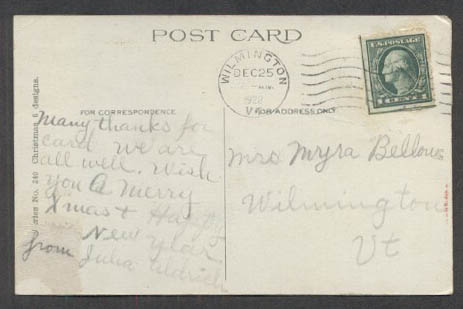 POST CARD
WILMINGTON
DEC 25
1922
VT.
U.S. POSTAGE
1 CENT 1
FOR CORRESPONDENCE
FOR ADDRESS ONLY
Series No. 240 Christmas 6 designs.
Many thanks for
card we are
all well. Wish
you a Merry
Xmas & Happy
New Year
from Julia Aldrich
Mrs Myra Bellows
Wilmington
Vt